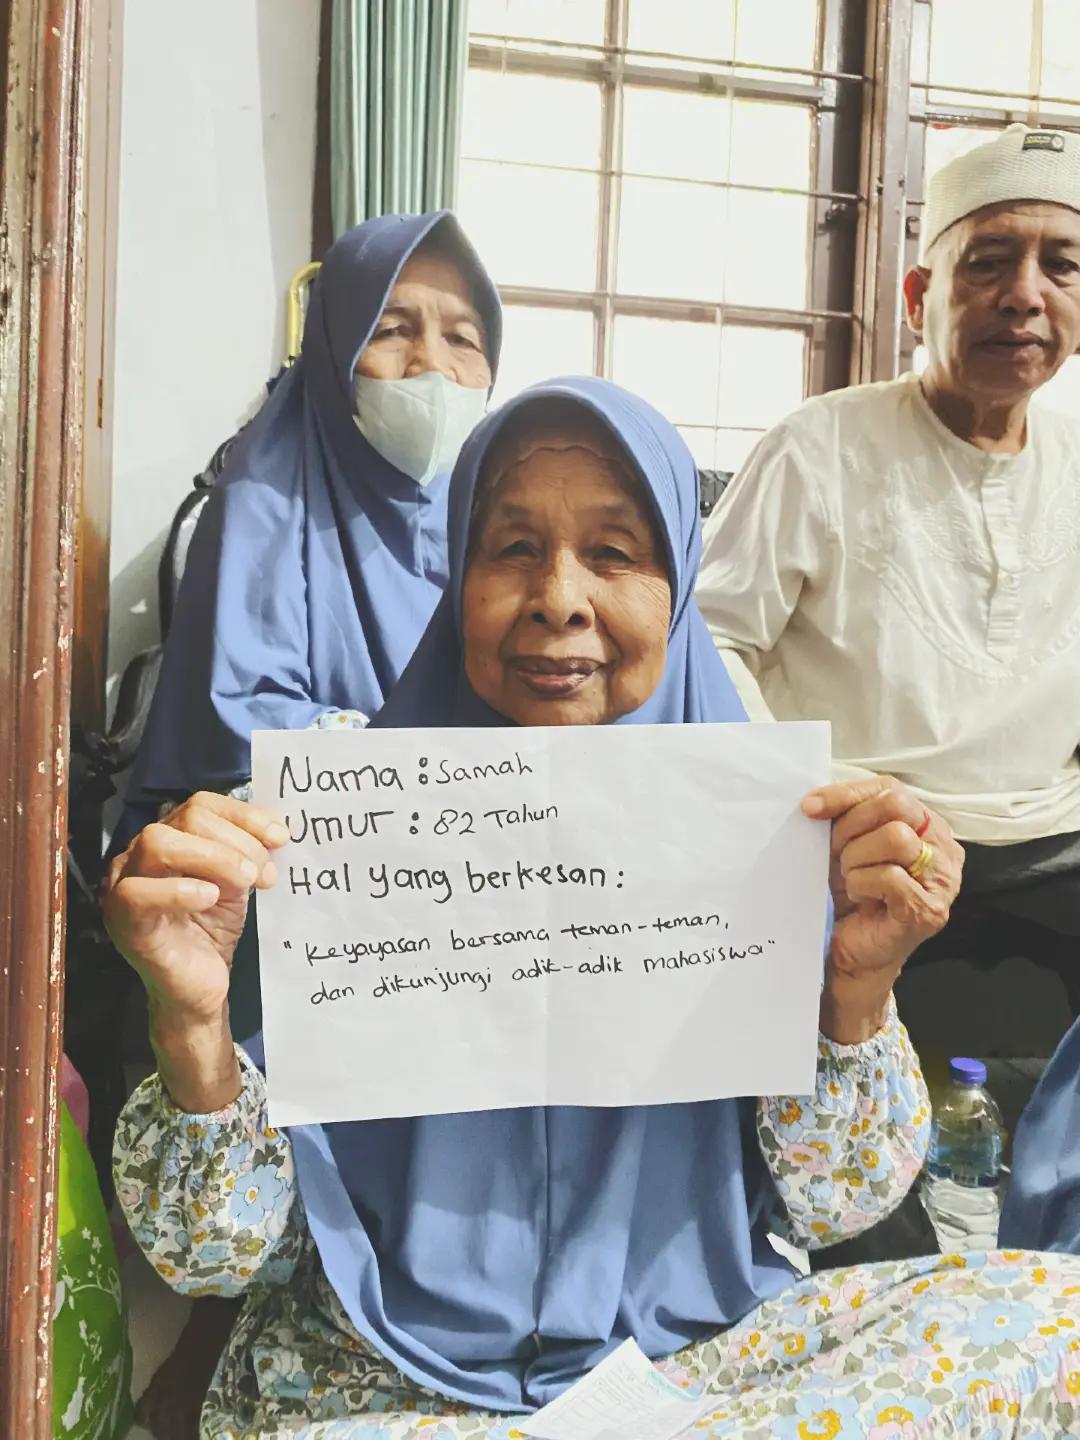 Nama : Samah
Umur : 82 Tahun
Hal yang berkesan :
" Keyayasan bersama teman-teman,
dan dikunjungi adik-adik mahasiswa "